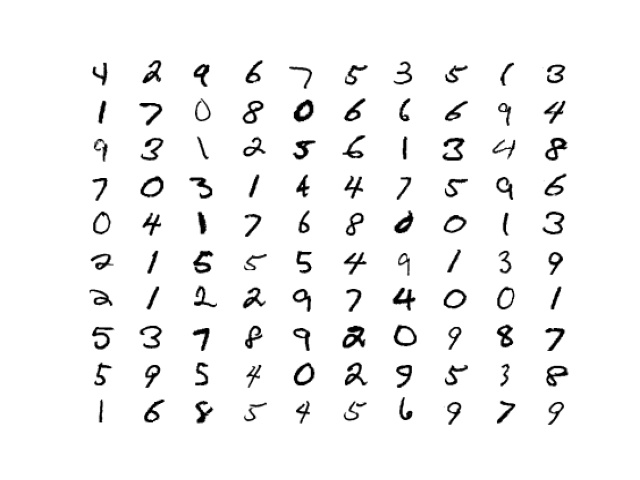 4 2 9 6 7 5 3 5 1 3
1 7 0 8 0 6 6 6 9 4
9 3 1 2 5 6 1 3 4 8
7 0 3 1 4 4 7 5 9 6
0 4 1 7 6 8 0 0 1 3
2 1 5 5 5 4 9 1 3 9
2 1 2 2 9 7 4 0 0 1
5 3 7 8 9 2 0 9 8 7
5 9 5 4 0 2 9 5 3 8
1 6 8 5 4 5 6 9 7 9